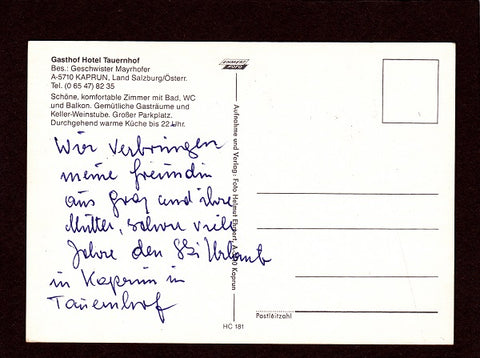 Gasthof Hotel Tauernhof
Bes.: Geschwister Mayrhofer
A-5710 KAPRUN, Land Salzburg/Österr.
Tel. (0 65 47) 82 35
Schöne, komfortable Zimmer mit Bad, WC
und Balkon. Gemütliche Gasträume und
Keller-Weinstube. Großer Parkplatz.
Durchgehend warme Küche bis 22 Uhr.
Wir verbringen
meine Freundin
aus Graz und ihre
Mutter, schon viele
Jahre den Ski Urlaub
in Kaprun im
Tauernhof
Aufnahme und Verlag: Foto Helmut Ehmert, Kaprun
Postleitzahl
HC 181